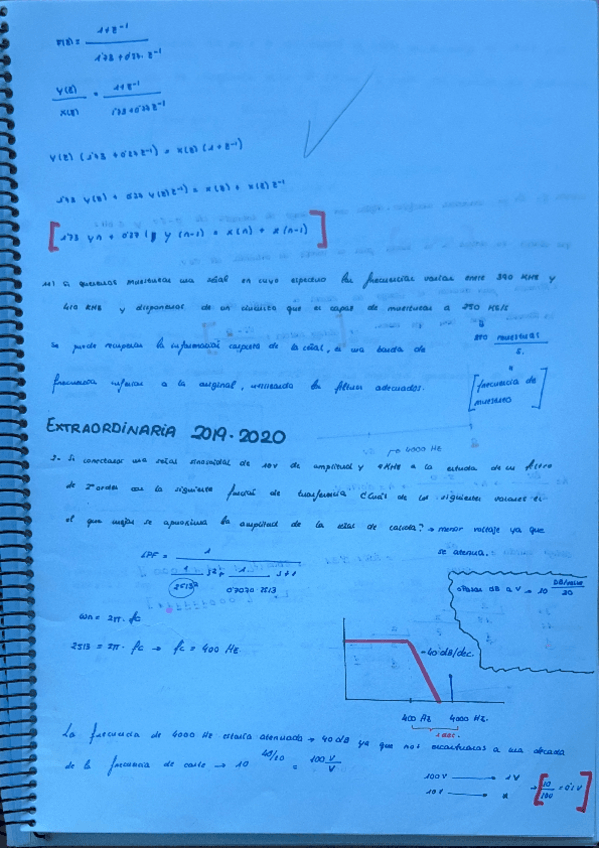 H(z) = 1+z⁻¹ / 1'73 + 0'27·z⁻¹
Y(z) / X(z) = 1+z⁻¹ / 1'73+0'27z⁻¹
Y(z) (1'73 + 0'27z⁻¹) = X(z) (1+z⁻¹)
1'73 Y(z) + 0'27 Y(z)z⁻¹ = X(z) + X(z)z⁻¹
[1'73 yn + 0'27 y(n-1) = x(n) + x(n-1)]
Si queremos muestrear una señal en cuyo espectro las frecuencias varían entre 390 KHz y
410 KHz y disponemos de un circuito que es capaz de muestrear a 250 KS/s
250 muestras / s.
Se puede recuperar la información completa de la señal, en una banda de
frecuencia inferior a la original, utilizando los filtros adecuados.
[frecuencia de muestreo]
EXTRAORDINARIA 2019-2020
→ 4000 Hz
Si conectamos una señal sinusoidal de 10V de amplitud y 4KHz a la entrada de un filtro
de 2º orden con la siguiente función de transferencia ¿Cuál de los siguientes valores es
el que mejor se aproxima la amplitud de la señal de salida? → menor voltaje ya que
se atenua.
LPF = 1 / 1/2513² s² + 1/0'7070·2513 s+1
Pasar dB a V → 10 DB/value / 20
ωn = 2π·fc
2513 = 2π·fc → fc = 400 Hz
-40 dB/dec.
400 Hz 4000 Hz.
1 dec.
La frecuencia de 4000 Hz estaría atenuada → 40 dB ya que nos encontramos a una década
de la frecuencia de corte → 10 40/20 = 100 V/V
100V → 1V
10V → x
→ [10/100 = 0'1 V]